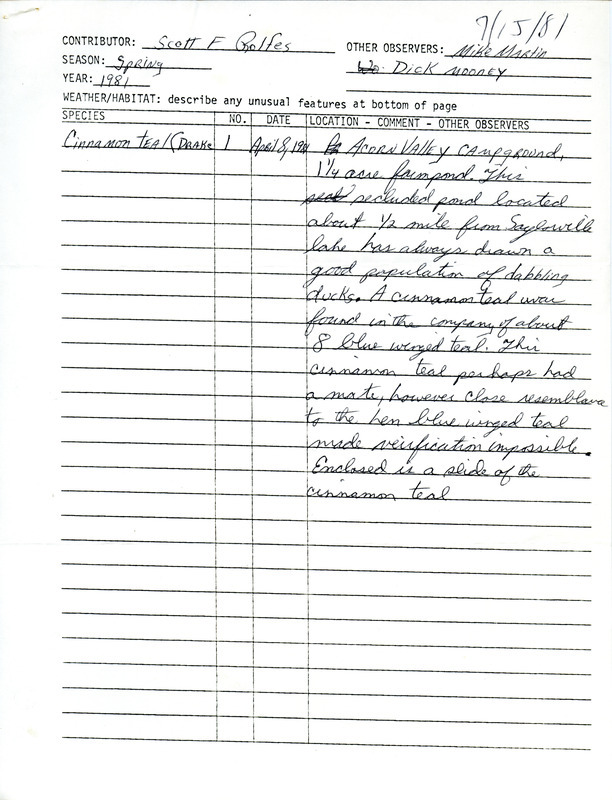 7/15/81
CONTRIBUTOR: Scott F Rolfes
OTHER OBSERVERS: Mike Martin
SEASON: Spring
Dick Mooney
YEAR: 1981
WEATHER/HABITAT: describe any unusual features at bottom of page
SPECIES NO. DATE LOCATION - COMMENT - OTHER OBSERVERS
Cinnamon Teal (Drake 1 April 8, 1981 Acorn Valley Campground,
1 1/4 acre farmpond. This
secluded pond located
about 1/2 mile from Saylorville
lake has always drawn a
good population of dabbling
ducks. A cinnamon teal was
found in the company of about
8 blue winged teal. This
cinnamon teal perhaps had
a mate, however close resemblance
to the hen blue winged teal
made verification impossible.
Enclosed is a slide of the
cinnamon teal